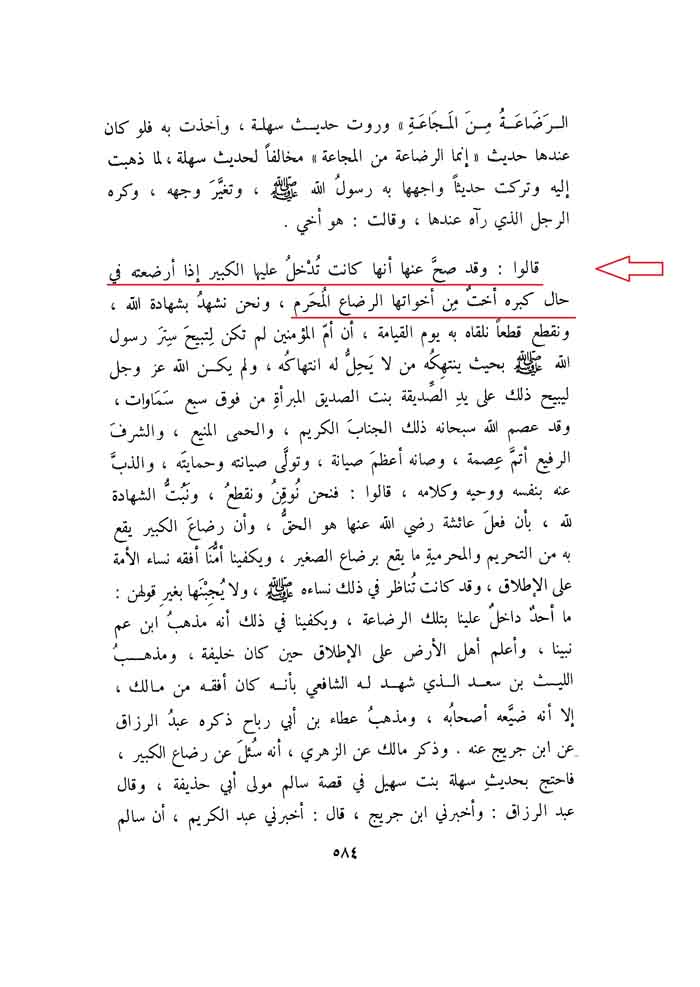 الـرَضَاعَـةُ مِـنَ الَمـجَاعَـةِ » وروت حديـث سهلـة ، وأخذت به فلو كان
عندها حديث « إنما الرضاعة من المجاعة » مخالفاً لحديث سهلة ، لما ذهبت
إليه وتركت حديثاً واجهها به رسولُ الله ﷺ ، وتغيَّرَ وجهه ، وكره
الرجل الذي رآه عندها ، وقالت : هو أخي .
قالوا : وقد صحَّ عنها أنها كانت تُدْخلُ عليها الكبير إذا أرضعته في
حال كبره أختٌ مِن أخواتها الرضاع المُحَرم ، ونحن نشهدُ بشهادة الله ،
ونقطع قطعاً نلقاه به يوم القيامة ، أن أمّ المؤمنين لم تكن لِتبيحَ سِترَ رسول
الله ﷺ بحيث ينتهِكُه من لا يَحِلُّ له انتهاكُه ، ولم يكـن الله عز وجل
ليبيح ذلك على يدِ الصِّديقة بنت الصديق المبرأةِ من فوق سبع سَمَاوات ،
وقد عصم الله سبحانه ذلك الجنابَ الكريم ، والحمى المنيع ، والشرفَ
الرفيع أتمَّ عِصمة ، وصانه أعظمَ صيانة ، وتولَّى صيانته وحمايتَه ، والذبَّ
عنه بنفسه ووحيه وكلامه ، قالوا : فنحن نُوقِنُ ونقطعُ ، ونَبُتُّ الشهادة
لله ، بأن فعلَ عائشة رضي الله عنها هو الحقُّ ، وأن رضاعَ الكبير يقع
به من التحريم والمحرميةِ ما يقع برضاع الصغير ، ويكفينا أمُّنَا أفقه نساء الأمة
على الإطلاق ، وقد كانت تُناظر في ذلك نساءه ﷺ ، ولا يُجِبْنَها بغيرِ قولهن :
ما أحدٌ داخلٌ علينا بتلك الرضاعة ، ويكفينا في ذلك أنه مذهبُ ابن عم
نبينا ، وأعلم أهل الأرض على الإطلاق حين كان خليفة ، ومذهـــبُ
الليـث بن سعـد الـذي شهـد لـه الشافعي بأنـه كان أفقـه من مـالك ،
إلا أنه ضيَّعه أصحابُه ، ومذهبُ عطاء بن أبي رباح ذكره عبدُ الرزاق
عن ابن جريج عنه . وذكر مالك عن الزهري ، أنه سُئلَ عن رضاع الكبير ،
فاحتج بحديثِ سهلة بنت سهيل في قصة سالم مولى أبي حذيفة ، وقال
عبد الرزاق : وأخبرني ابن جريج ، قال : أخبرني عبد الكريم ، أن سالم
٥٨٤